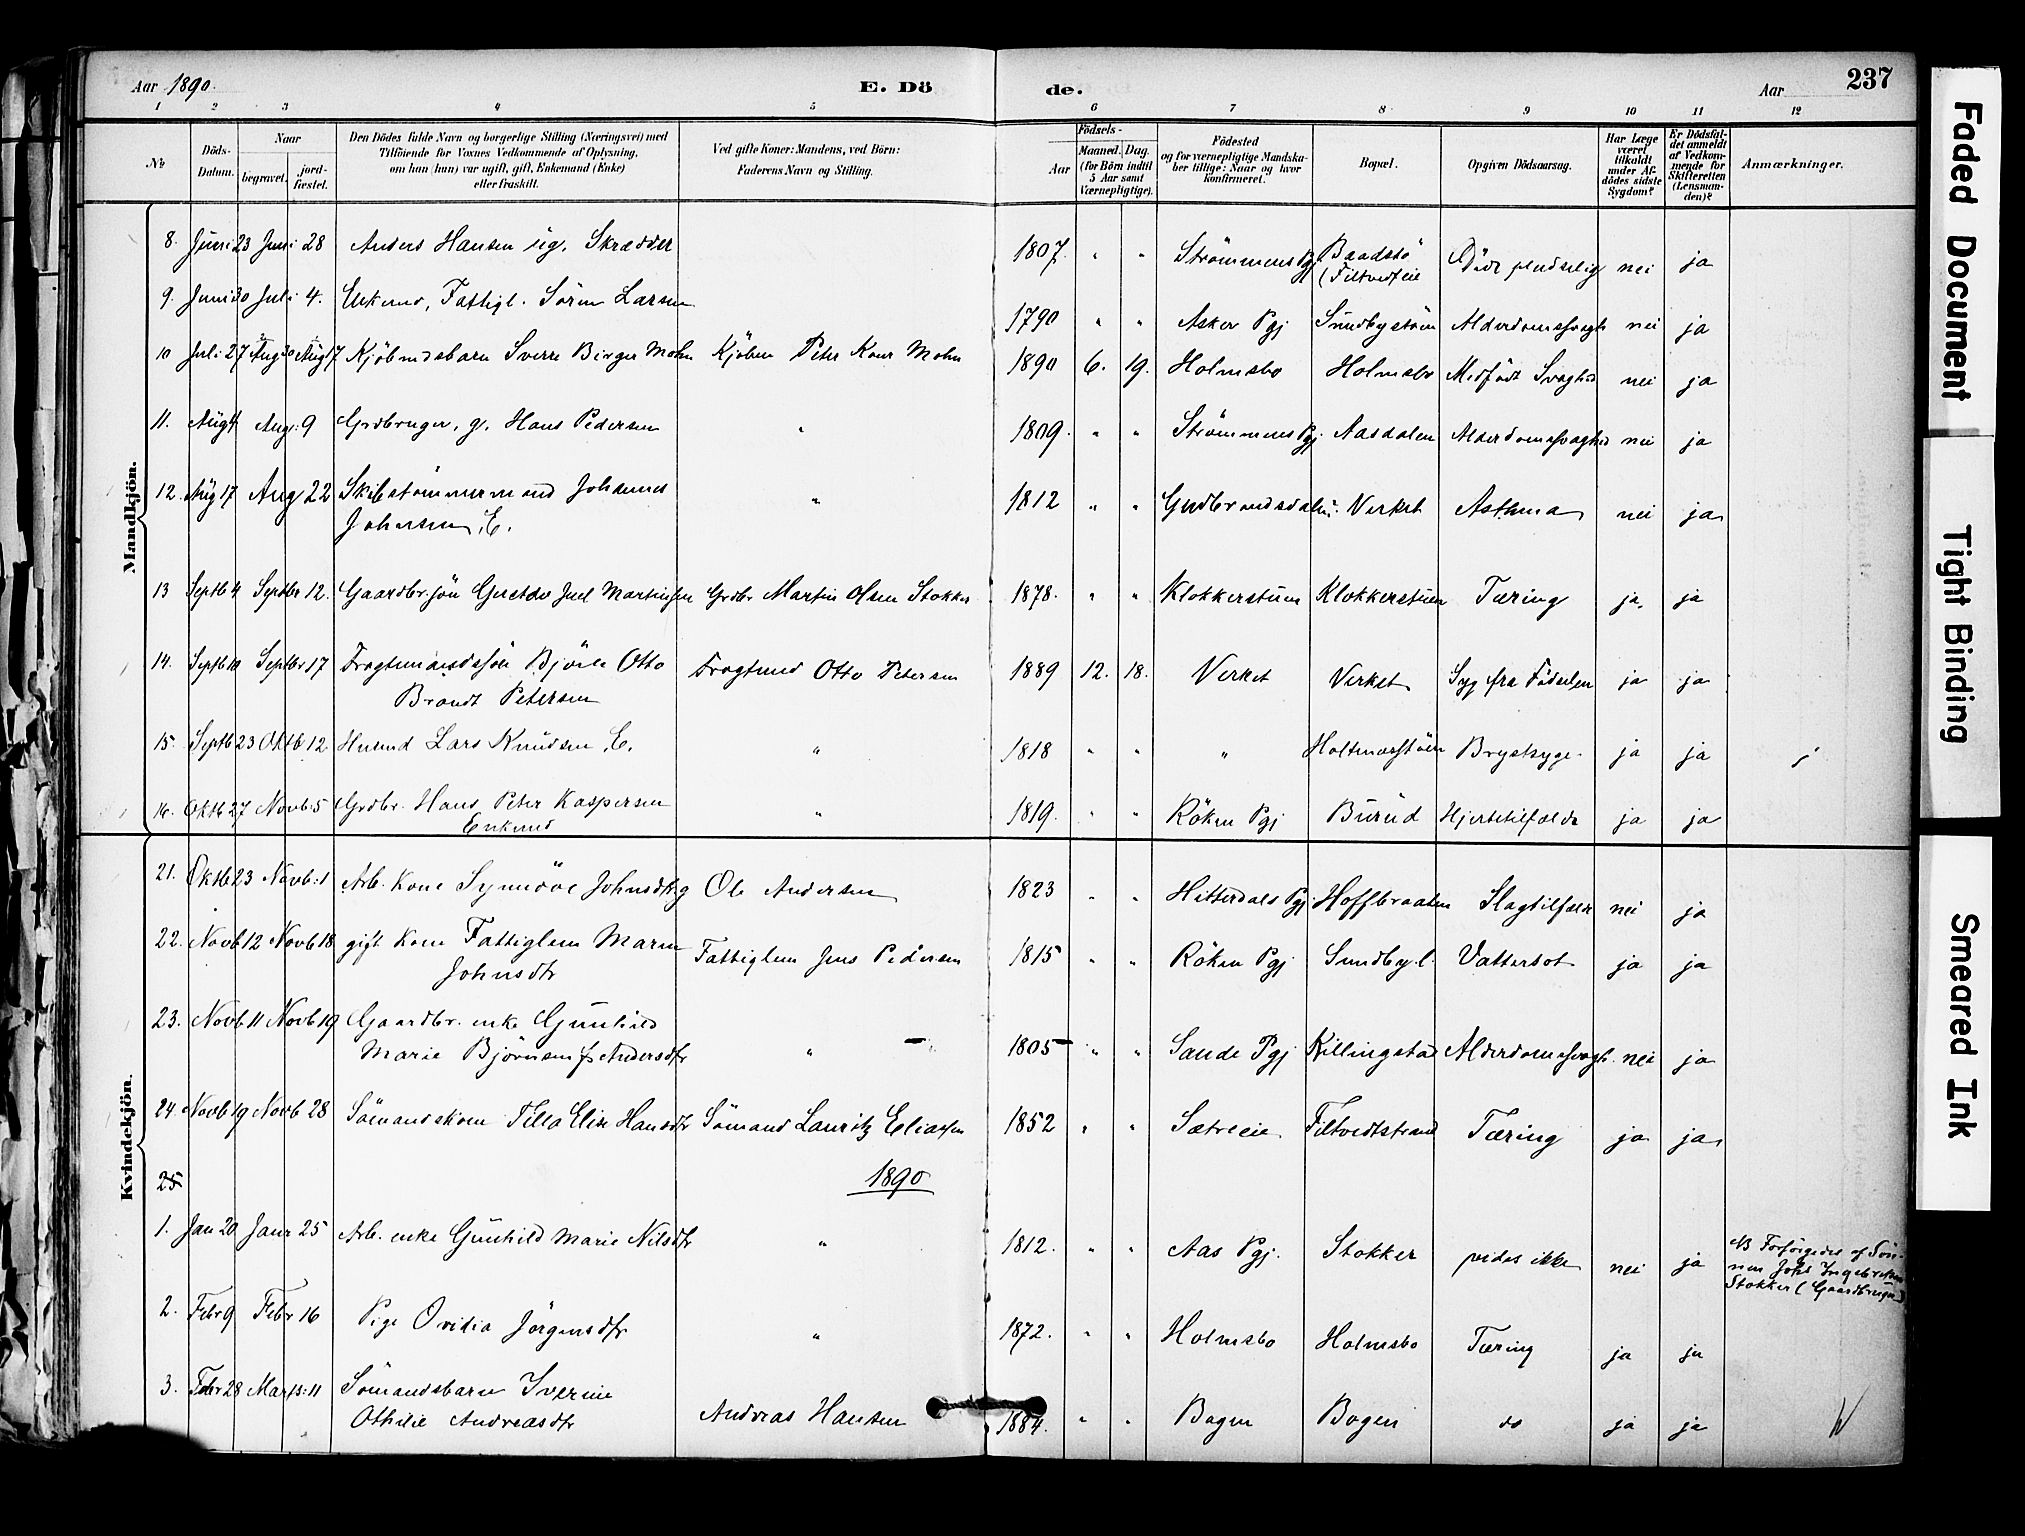 Aar 1890. E. Dö de. Aar 237
1 2 3 4 5 6 7 8 9 10 11 12
№ Döds-Datum. Naar begravet. jord-fæstet. Den Dödes fulde Navn og borgerlige Stilling (Næringsvei) med Tilföiende for Voxnes Vedkommende af Oplysning, om han (hun) var ugift, gift, Enkemand (Enke) eller fraskilt. Ved gifte Koner: Mandens, ved Börn: Faderens Navn og Stilling. Födsels- Aar Maaned. Dag. (for Börn indtil 5 Aar samt Værnepligtige). Födested og for værnepligtige Mandska-ber tillige: Naar og hvor konfirmeret. Bopæl. Opgiven Dödsaarsag. Har Læge været tilkaldt under Af-dödes sidste Sygdom? Er Dödsfal-det anmeldt af Vedkom-mende for Skifteretten (Lensman-den)? Anmærkninger.
Mandkjön.
8. Juni 23 Juni 28 Anders Hansen ug. Skrædder 1807. " " Strömmens Pgj Baadstö (Filtvedteie Död pludselig nei ja
9. Juni 30 Juli 4. Enkemd, Fattigl. Sören Larsen 1790 " " Asker Pgj Sundbystöen Alderdomssvagh nei ja
10 Juli 27 Aug 17 Kjöbmdsbarn Sverre Birger Mohn Kjöbm Peter Mohn 1890 6. 19. Holmsbo Holmsbo Medfödt Svaghed nei ja
11. Aug 4 Aug: 9 Grdbruger, g. Hans Pedersen " 1809. " " Strömmens Pgj. Aasdalen Alderdomssvaghed nei ja
12. Aug 17 Aug 22 Skibstömmermand Johannes
Johnsen, E. " 1812 " " Gudbrandsdalen. Verket Asthma nei ja
13 Septb 4 Septbr 12. Gaardbr.sön Gustav Juel Martinsen Grdbr Martin Olsen Stokker 1878. " " Klokkerstuen Klokkerstuen Tæring ja, ja
14. Septb 10 Septbr 17 Fragtmandssön Björn Otto
Brandt Petersen Fragtmd Otto Petersen 1889 12. 18. Verket Verket Syg fra Födselen ja ja
15. Septb 23 Oktb 12 Husmd Lars Knudsen, E. " 1818 " " " Holtnæsstöen Brystsyge ja ja
16. Oktb 27 Novb: 5 Grdbr. Hans Peter Kaspersen
Enkemd " 1819. " " Röken Pgj Burud Hjertetilfælde ja ja
Kvindekjön.
21. Oktb 23 Novb: 1 Arb. Kone Synnöve Johnsdtr g Ole Andersen 1823 " " Hitterdals Pgj. Hoffbraaten Slagtilfælde nei ja
22. Novb 12 Novb 18 gift Kone Fattiglem Maren
Johnsdtr Fattiglem Jens Pedersen 1815 " " Röken Pgj Sundby l. Vattersot ja ja
23. Novb 11 Novb 19 Gaardbr. enke Gunhild
Marie Björnsen f. Andersdtr " 1805 " " Sande Pgj Killingstad Alderdomssvagh. nei ja
24. Novb 19 Novb 28 Sömandskone Tilla Elise Hansdtr Sömand Lauritz Eliassen 1852 " " Sætreeie Filtvedtstrand Tæring ja ja
25 1890
1. Jan 20 Janr 25 Arb. enke Gunhild Marie Nilsdtr " 1812. " " Aas Pgj. Stokker vides ikke nei ja NB Forsörgedes af Sön-
nen Johs Ingebretsen
Stokker (Gaardbruger)
2. Febr 9 Febr 16 Pige Ovidia Jörgensdtr " 1872. " " Holmsbo Holmsbo Tæring ja ja
3. Febr 28 Marts: 11 Sömandsbarn Iverine
Othilie Andreasdtr Andreas Hansen 1884. " " Bogen Bogen do ja ja
Faded Document
Tight Binding
Smeared Ink